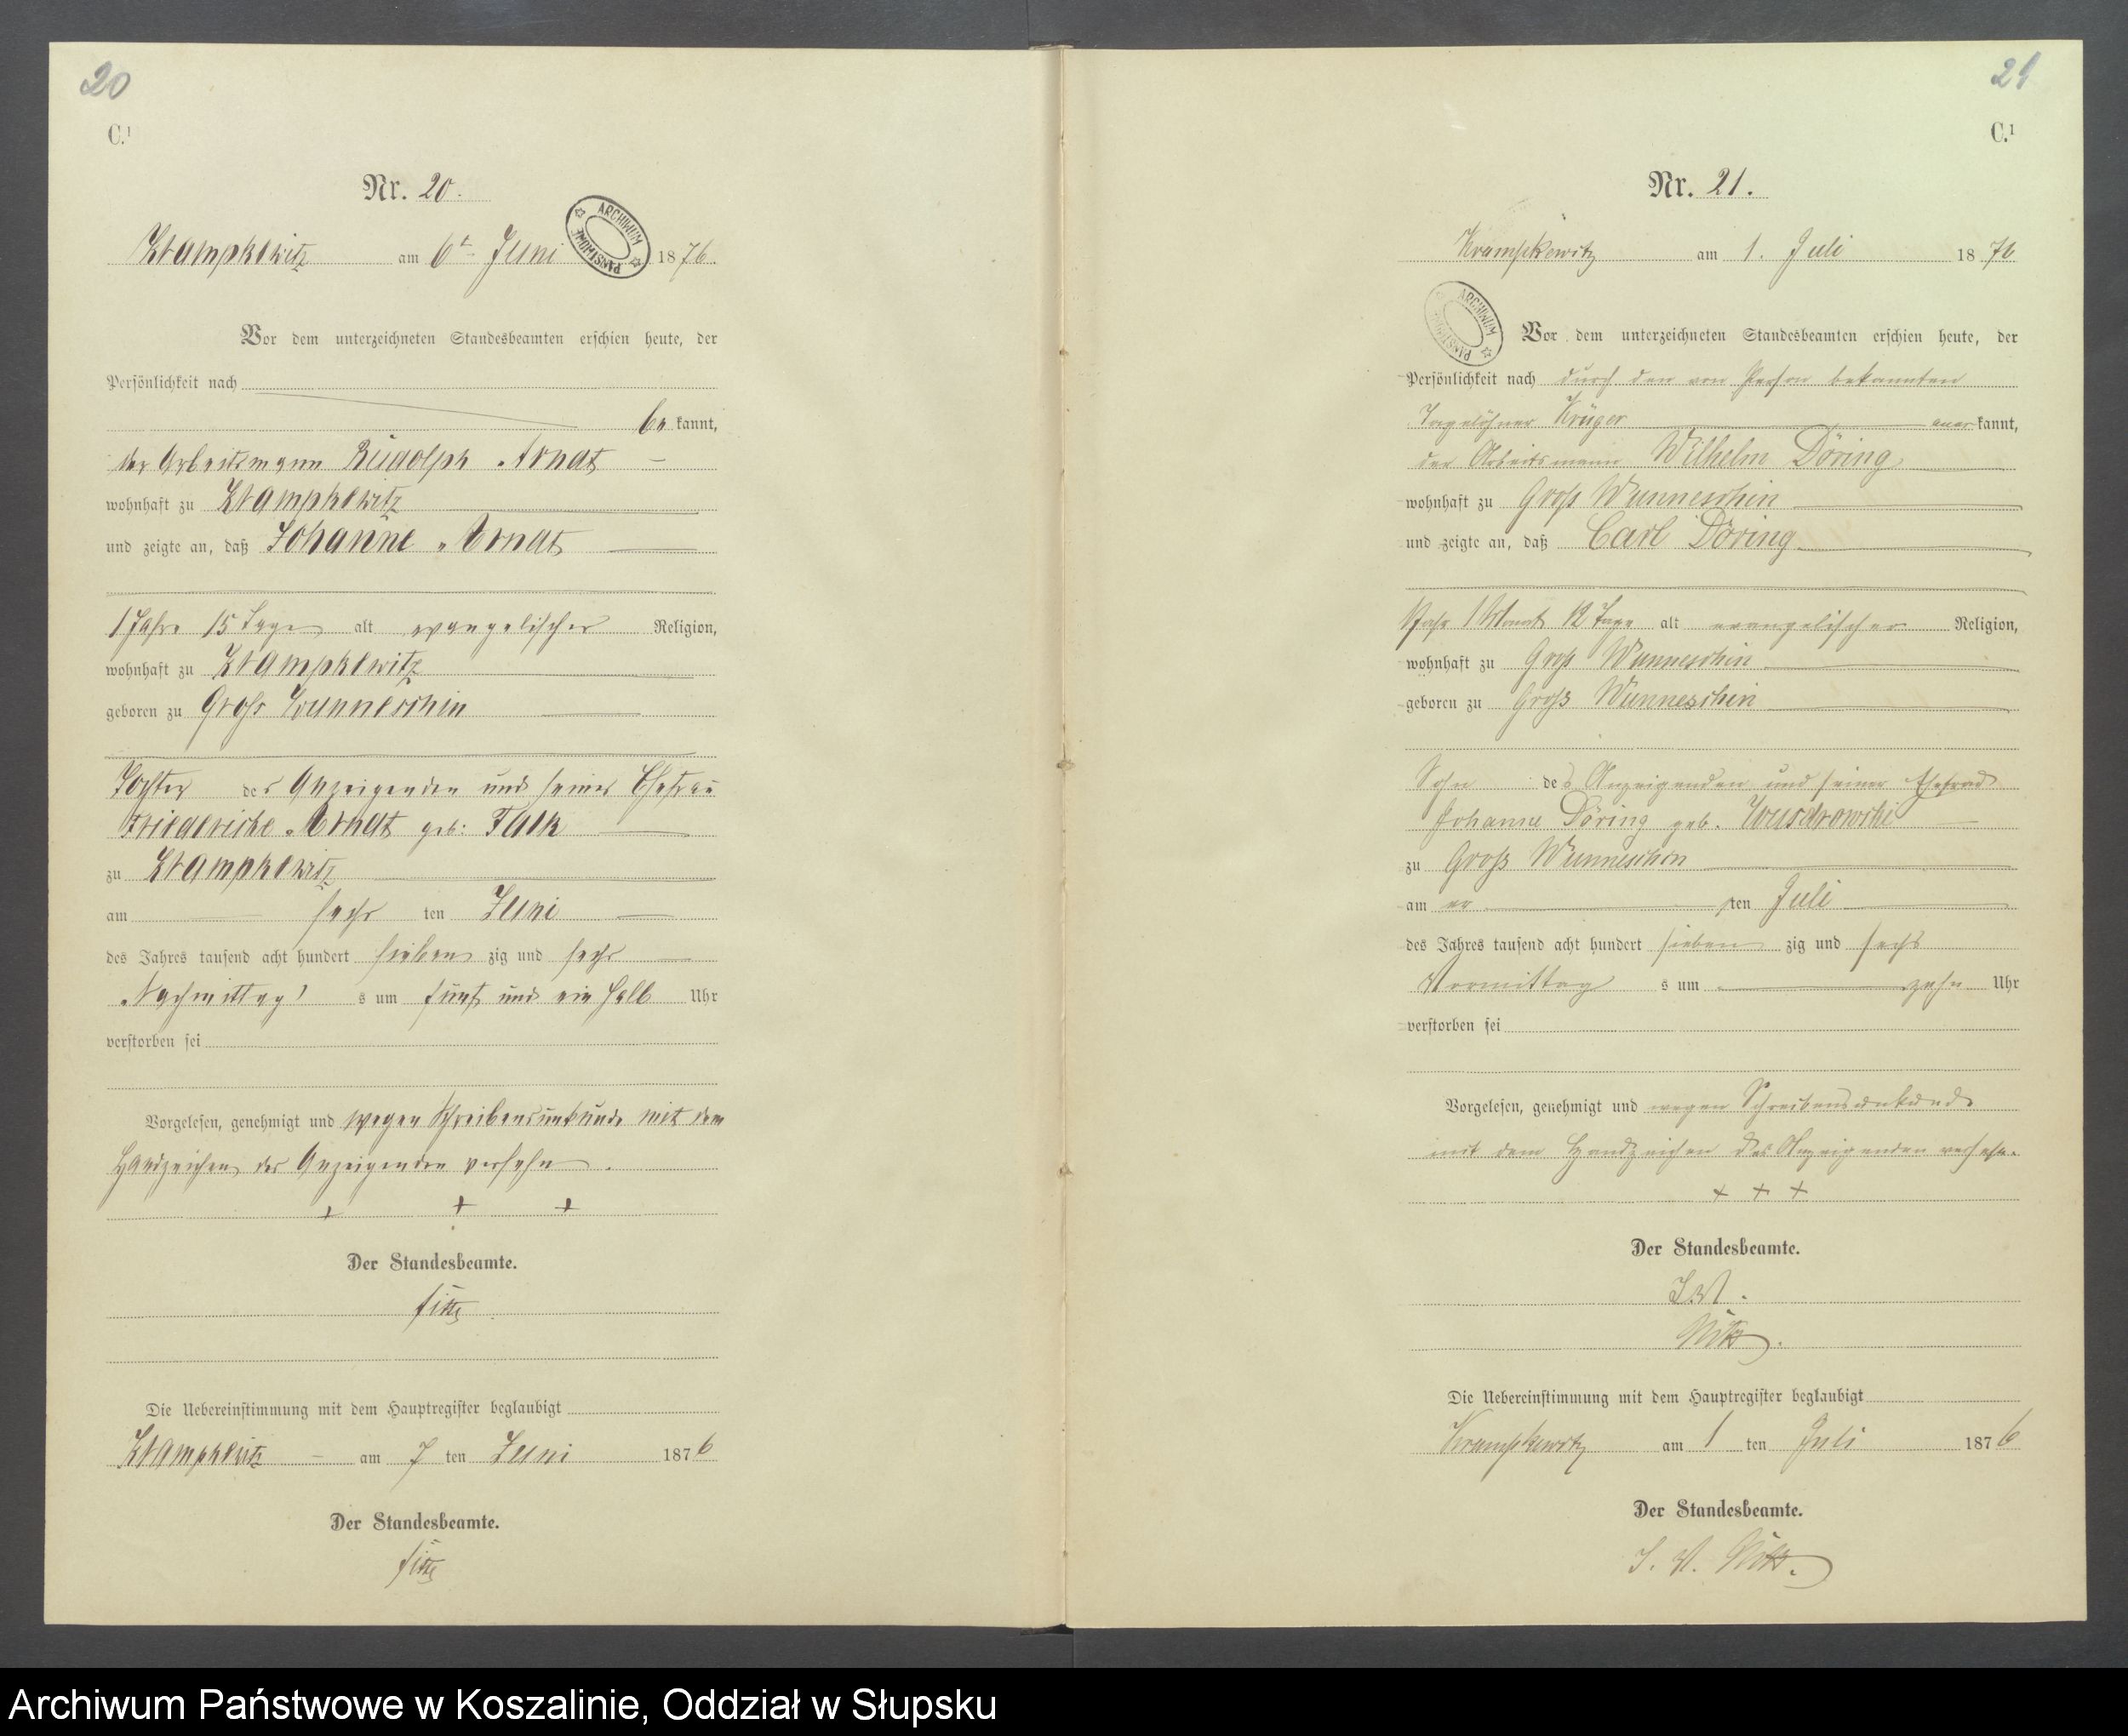 20
C.¹
Nr. 20.
Krampkewitz am 6t Juni 1876.
ARCHIWUM PAŃSTWOWE
Vor dem unterzeichneten Standesbeamten erschien heute, der
Persönlichkeit nach
be kannt,
der Arbeitsmann Rudolph Arndt
wohnhaft zu Krampkewitz
und zeigte an, daß Johanne Arndt
1 Jahr 15 Tage alt evangelischer Religion,
wohnhaft zu Krampkewitz
geboren zu Groß Wunneschin
Tochter des Anzeigenden und seiner Ehefrau
Friedericke Arndt geb: Falk
zu Krampkewitz
am sechs ten Juni
des Jahres tausend acht hundert sieben zig und sechs
Nachmittag s um fünf und ein halb Uhr
verstorben sei
Vorgelesen, genehmigt und wegen Schreibensunkunde mit dem
Handzeichen des Anzeigenden versehen.
+ + +
Der Standesbeamte.
Die Uebereinstimmung mit dem Hauptregister beglaubigt
Krampkewitz am 7 ten Juni 1876
Der Standesbeamte.
21
C.¹
Nr. 21.
Krampkewitz am 1. Juli 1876
ARCHIWUM PAŃSTWOWE
Vor dem unterzeichneten Standesbeamten erschien heute, der
Persönlichkeit nach durch den von Person bekannten
Tagelöhner Krüger aner kannt,
der Arbeitsmann Wilhelm Döring
wohnhaft zu Groß Wunneschin
und zeigte an, daß Carl Döring
1 Jahr 1 Monat 12 Tage alt evangelischer Religion,
wohnhaft zu Groß Wunneschin
geboren zu Groß Wunneschin
Sohn des Anzeigenden und seiner Ehefrau
Johanne Döring geb.
zu Groß Wunneschin
am er sten Juli
des Jahres tausend acht hundert sieben zig und sechs
Vormittag s um zehn Uhr
verstorben sei
Vorgelesen, genehmigt und wegen Schreibensunkunde
mit dem Handzeichen des Anzeigenden versehen.
+ + +
Der Standesbeamte.
I. V.
Die Uebereinstimmung mit dem Hauptregister beglaubigt
Krampkewitz am 1 ten Juli 1876
Der Standesbeamte.
I. V.
Archiwum Państwowe w Koszalinie, Oddział w Słupsku